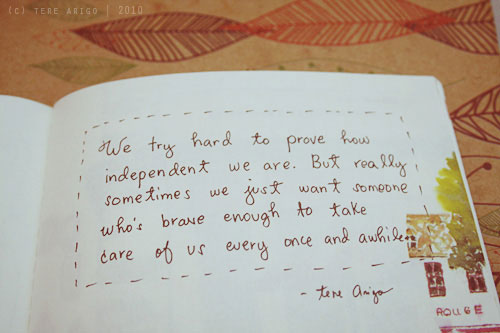 (c) TERE ARIGO | 2010
We try hard to prove how
independent we are. But really
sometimes we just want someone
who's brave enough to take
care of us every once and awhile.
- tere Arigo
ROUGE